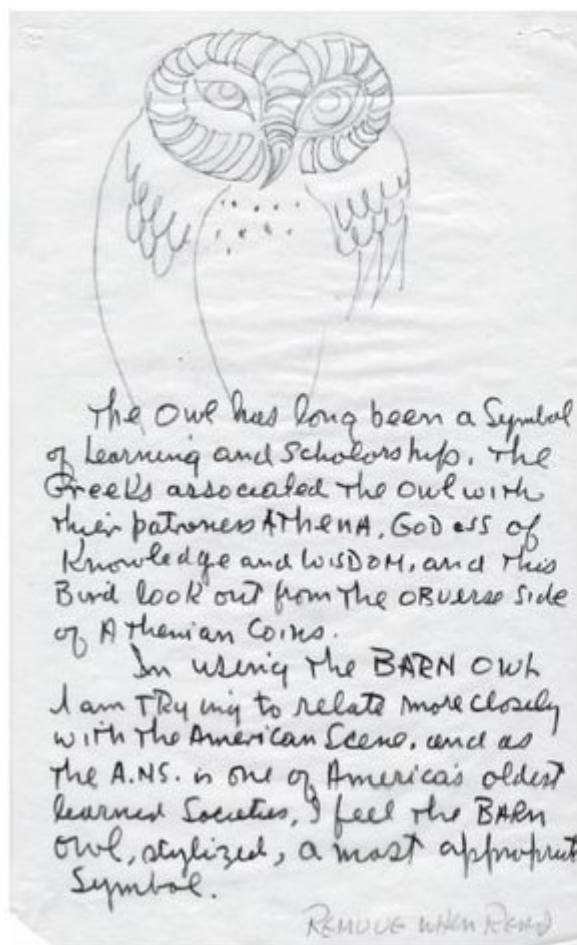 The Owl has long been a Symbol
of Learning and Scholorship. The
Greeks associated the Owl with
thier patroness AThenA, GODess of
Knowledge and WISDOM, and this
Bird look out from the OBverse side
of AThenian Coins.
In using the BARN OWL
I am TRying to relate more closely
with the American Scene, and as
the A.NS. is one of America's oldest
learned Societies, I feel the BARN
Owl, stylized, a most appropriat
Symbol.
REMOVE WHEN READ